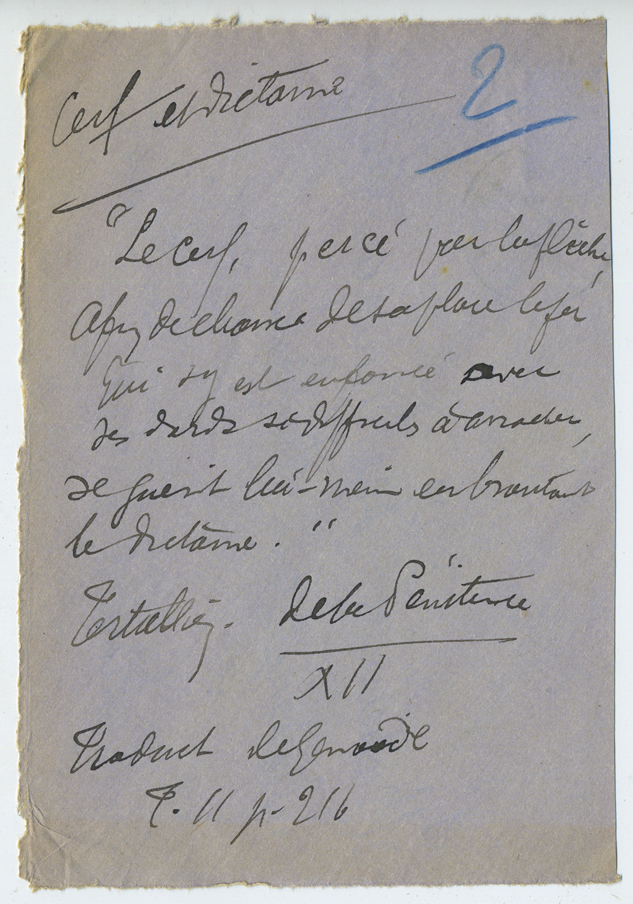 Cerf et dictame 2
"Le cerf, percé par la flèche,
afin de chasser de sa plaie le fer
qui s'y est enfoncé avec
des dards si difficiles à arracher,
se guérit lui-même en broutant
le dictame."
Tertullien. De la Pénitence
XII
Traduct de Genoude
T. II p. 216